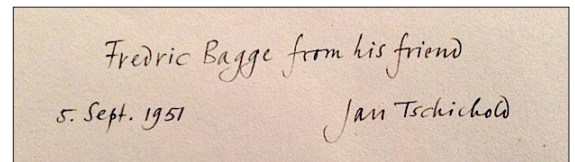 Fredric Bagge from his friend
5. Sept. 1951 Jan Tschichold